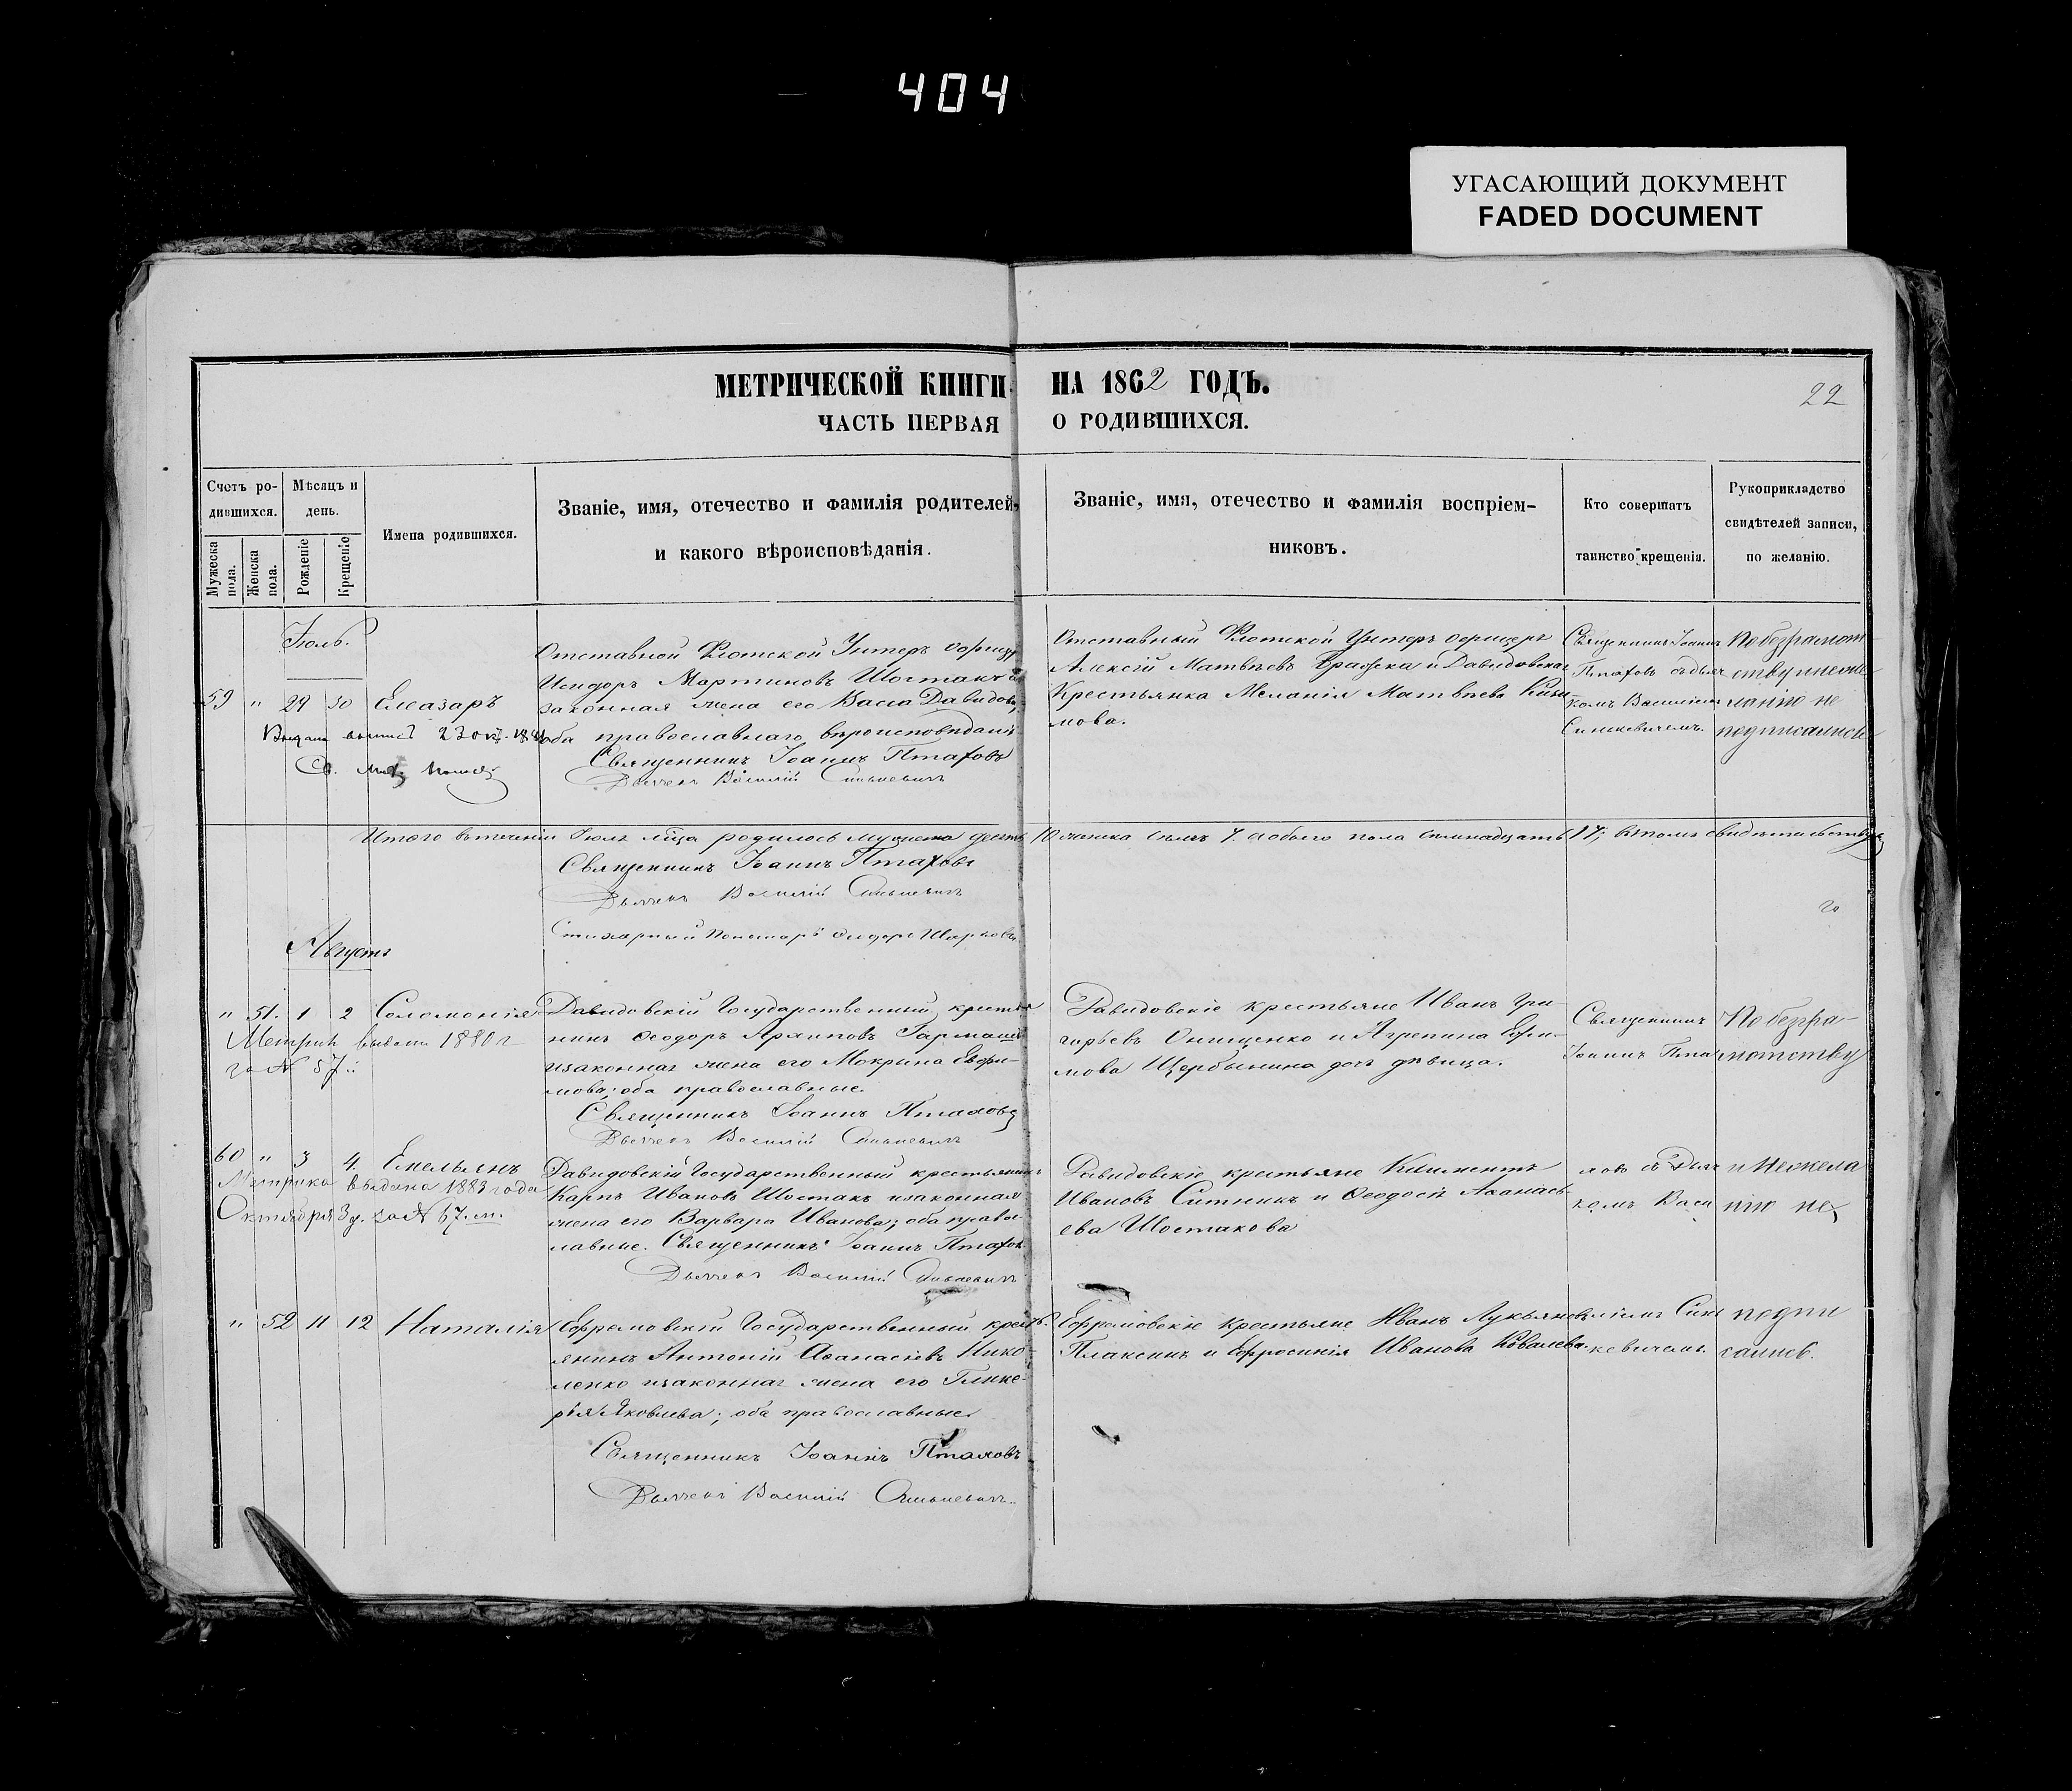 404
УГАСАЮЩИЙ ДОКУМЕНТ
FADED DOCUMENT
МЕТРИЧЕСКОЙ КНИГИ НА 1862 ГОДЪ.
22
ЧАСТЬ ПЕРВАЯ О РОДИВШИХСЯ.
Счетъ ро-
дившихся.
Мужеска пола.
Женска пола.
Мѣсяцъ и
день.
Рожденіе
Крещеніе
Имена родившихся.
Званіе, имя, отечество и фамилія родителей,
и какого вѣроисповѣданія.
Званіе, имя, отечество и фамилія воспріем-
никовъ.
Кто совершалъ
таинство крещенія.
Рукоприкладство
свидѣтелей записи,
по желанію.
Іюль.
59 " 29 30 Елеазаръ
Отставной Флотской Унтеръ офицеръ
Исидоръ Мартиновъ Шостакъ и
законная жена его Васса Давидова;
оба православнаго вѣроисповѣданія
Священникъ Іоаннъ Птаховъ
Дьячекъ Василій Синькевичъ
Отставный Флотской Унтеръ офицеръ
Алексій Матвѣевъ и Давидовская
Крестьянка Меланія Матвѣева
мова.
Священникъ Іоаннъ
Птаховъ съ дьяч
комъ Василіемъ
Синькевичемъ.
По безграмот-
ству и неже-
ланію не
подписались
Итого въ теченіи Іюля мѣсца родилось мужеска десять 10 женска семь 7. а обоего пола семнадцать 17; въ томъ свидѣтельствуемъ
Священникъ Іоаннъ Птаховъ
Дьячекъ Василій Синькевичъ
Стихарный Пономарь Ѳеодоръ
Августъ
" 51. 1 2 Соломонія
Метрик выдана 1880 г
за № 57
Давидовскій Государственный крестья
нинъ Ѳеодоръ Архиповъ
и законная жена его Мокрина Евфи-
мова; оба православные.
Священникъ Іоаннъ Птаховъ
Дьячекъ Василій Синькевичъ
Давидовскіе крестьяне Иванъ Гри-
горьевъ Онищенко и Агрепина Ефи-
мова Щербынина дочь дѣвица.
Священникъ
Іоаннъ Пта
По безгра-
мотству
60 " 3 4. Емельянъ
Метрика выдана 1883 года
Октября 3 д. за № 67.
Давидовскій Государственный крестьянинъ
Карпъ Ивановъ Шостакъ и законная
жена его Варвара Иванова; оба право-
славные. Священникъ Іоаннъ Птаховъ
Дьячекъ Василій Синькевичъ
Давидовскіе крестьяне Климентъ
Ивановъ Ситникъ и Ѳеодосія Аѳанась-
ева Шостакова
ховъ съ Дьяч
комъ Васи
и нежела
нію не
" 52 11 12 Наталія
Ефремовскій Государственный кресть-
янинъ Антоній Аѳанасіевъ Нико-
ленко и законная жена его Глике-
рія Яковлева; оба православные.
Священникъ Іоаннъ Птаховъ
Дьячекъ Василій Синькевичъ.
Ефремовскіе крестьяне Иванъ Лукьяновъ
Плаксинъ и Ефросинія Иванова Ковалева.
ліемъ Синь
кевичемъ.
подпи
сались.